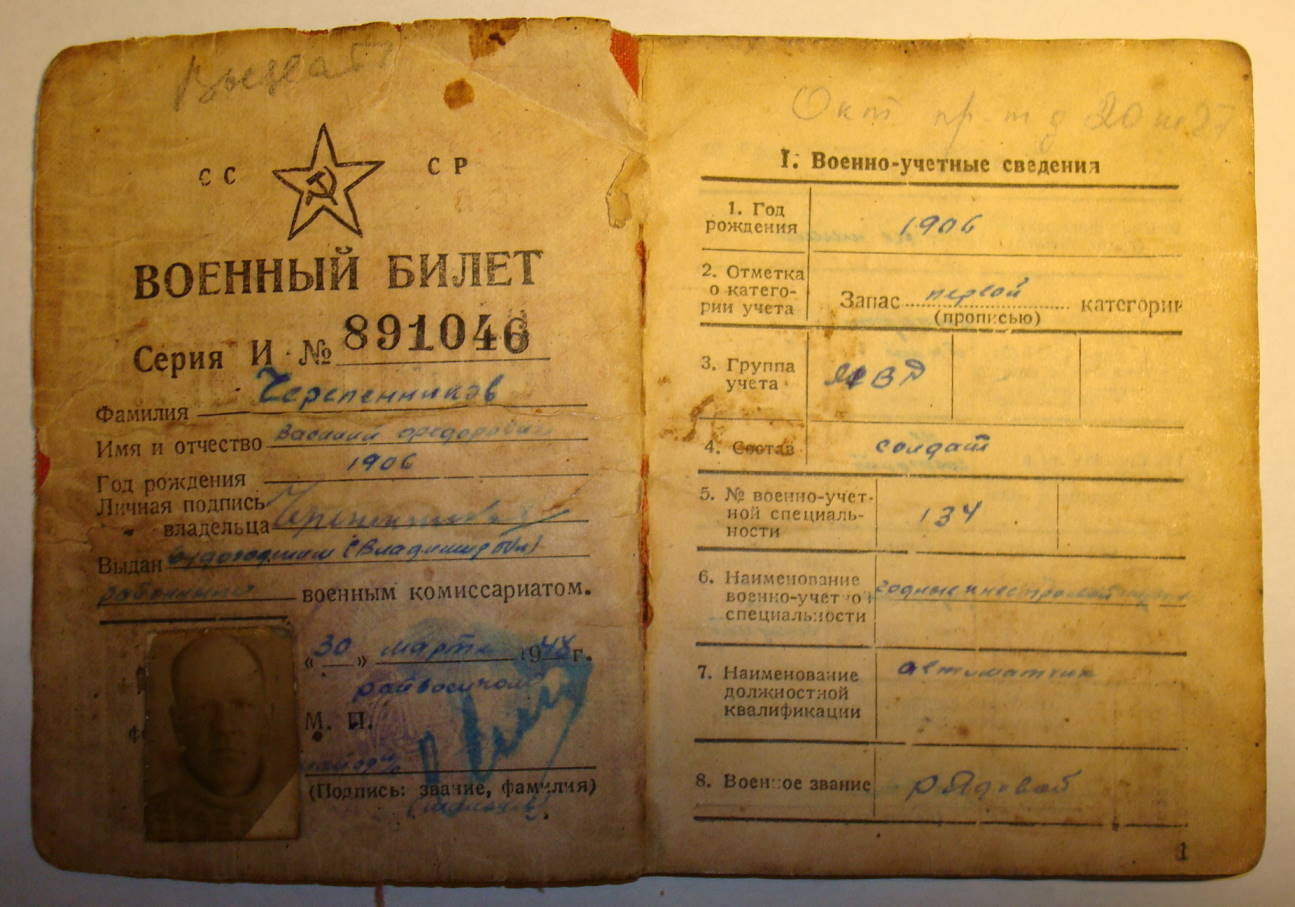 СС СР
ВОЕННЫЙ БИЛЕТ
Серия И № 891046
Фамилия Черепенников
Имя и отчество Василий Федорович
Год рождения 1906
Личная подпись
владельца
Выдан
военным комиссариатом.
«30» марта 1948 г.
райвоенком
М. П.
(Подпись: звание, фамилия)
I. Военно-учетные сведения
1. Год
рождения
1906
2. Отметка
о катего-
рии учета
Запас первой категории
(прописью)
3. Группа
учета
4. Состав солдат
5. № военно-учет-
ной специаль-
ности
134
6. Наименование
военно-учетной
специальности
7. Наименование
должностной
квалификации
автоматчик
8. Военное звание рядовой
1